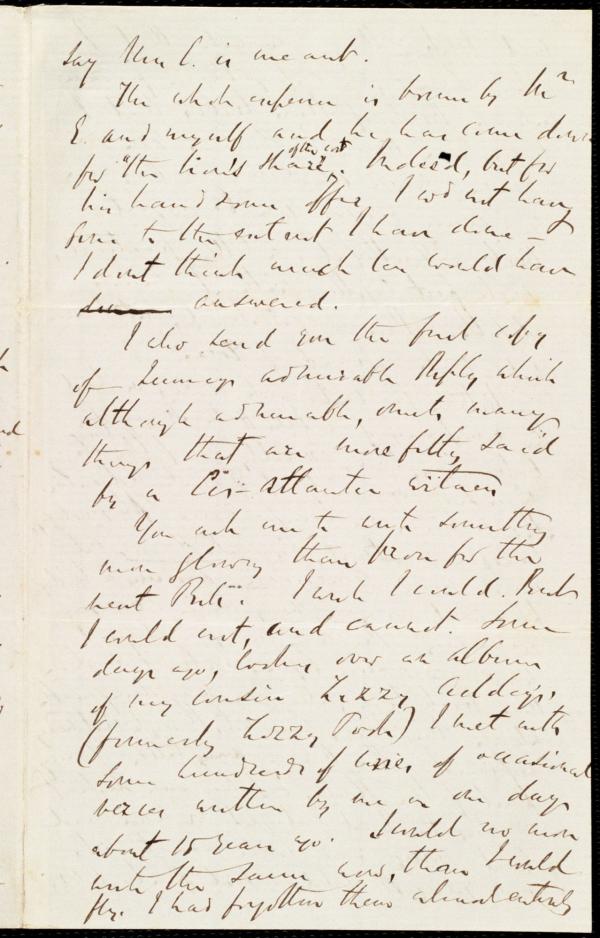 say Mrs C. is meant.
The whole expense is borne by Mr
E. and myself and he has come down
for "the lion's share of the cost". Indeed, but for
his handsome offer, I wd not have
gone to the extent I have done –
I dont think much less would have
answered.
I also send you the first copy
of admirable Reply which
although admirable, omits many
things that are more fitly said
by a Cis-Atlantic witness
You ask me to write something
more glowing than prose for the
next Bell". I wish I could. But
I could not, and cannot. Some
days ago, looking over an album
of my cousin Lizzy
(formerly Lizzy) I met with
some hundreds of lines of occasional
verses written by me in one day
about 15 years ago. I could no more
write the same now, than I could
fly. I had forgotten them almost entirely